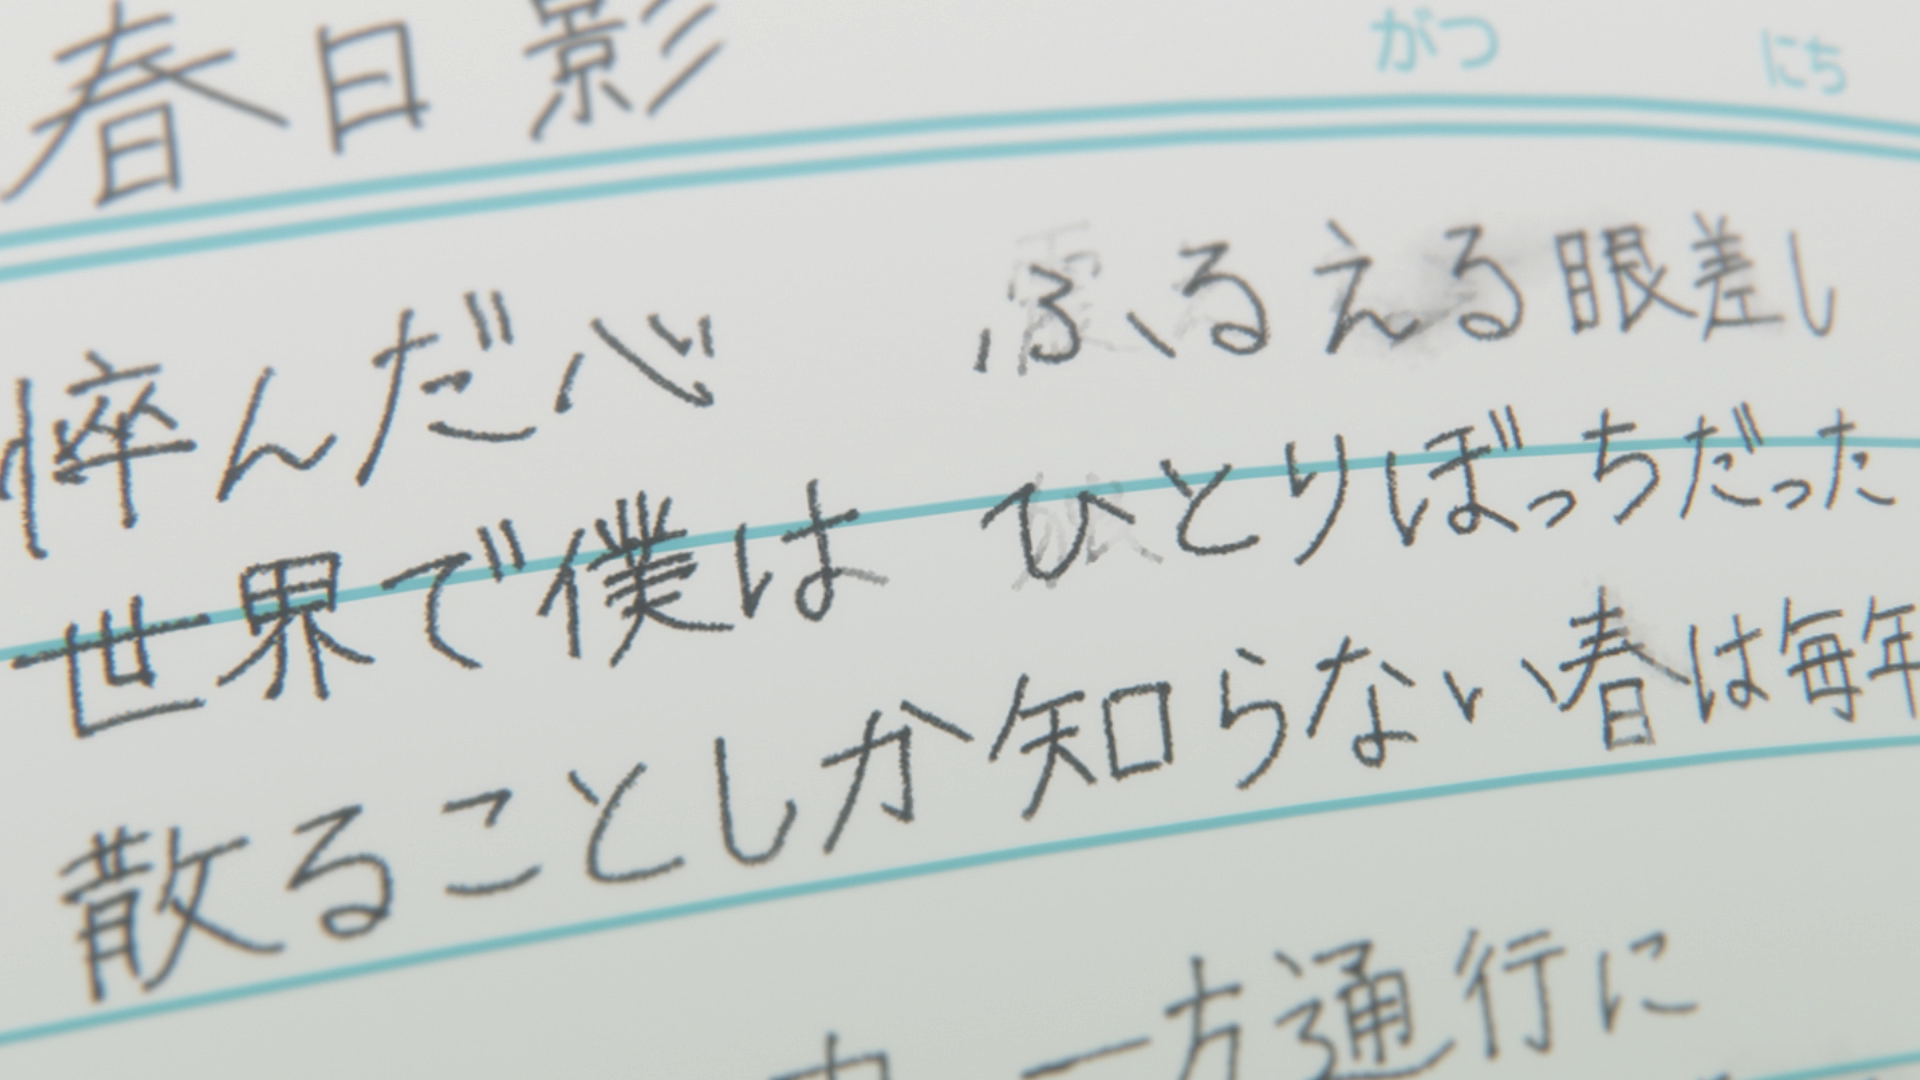 春日影
がつ にち
悴んだ心 ふるえる眼差し
世界で僕は ひとりぼっちだった
散ることしか知らない春は毎年
一方通行に